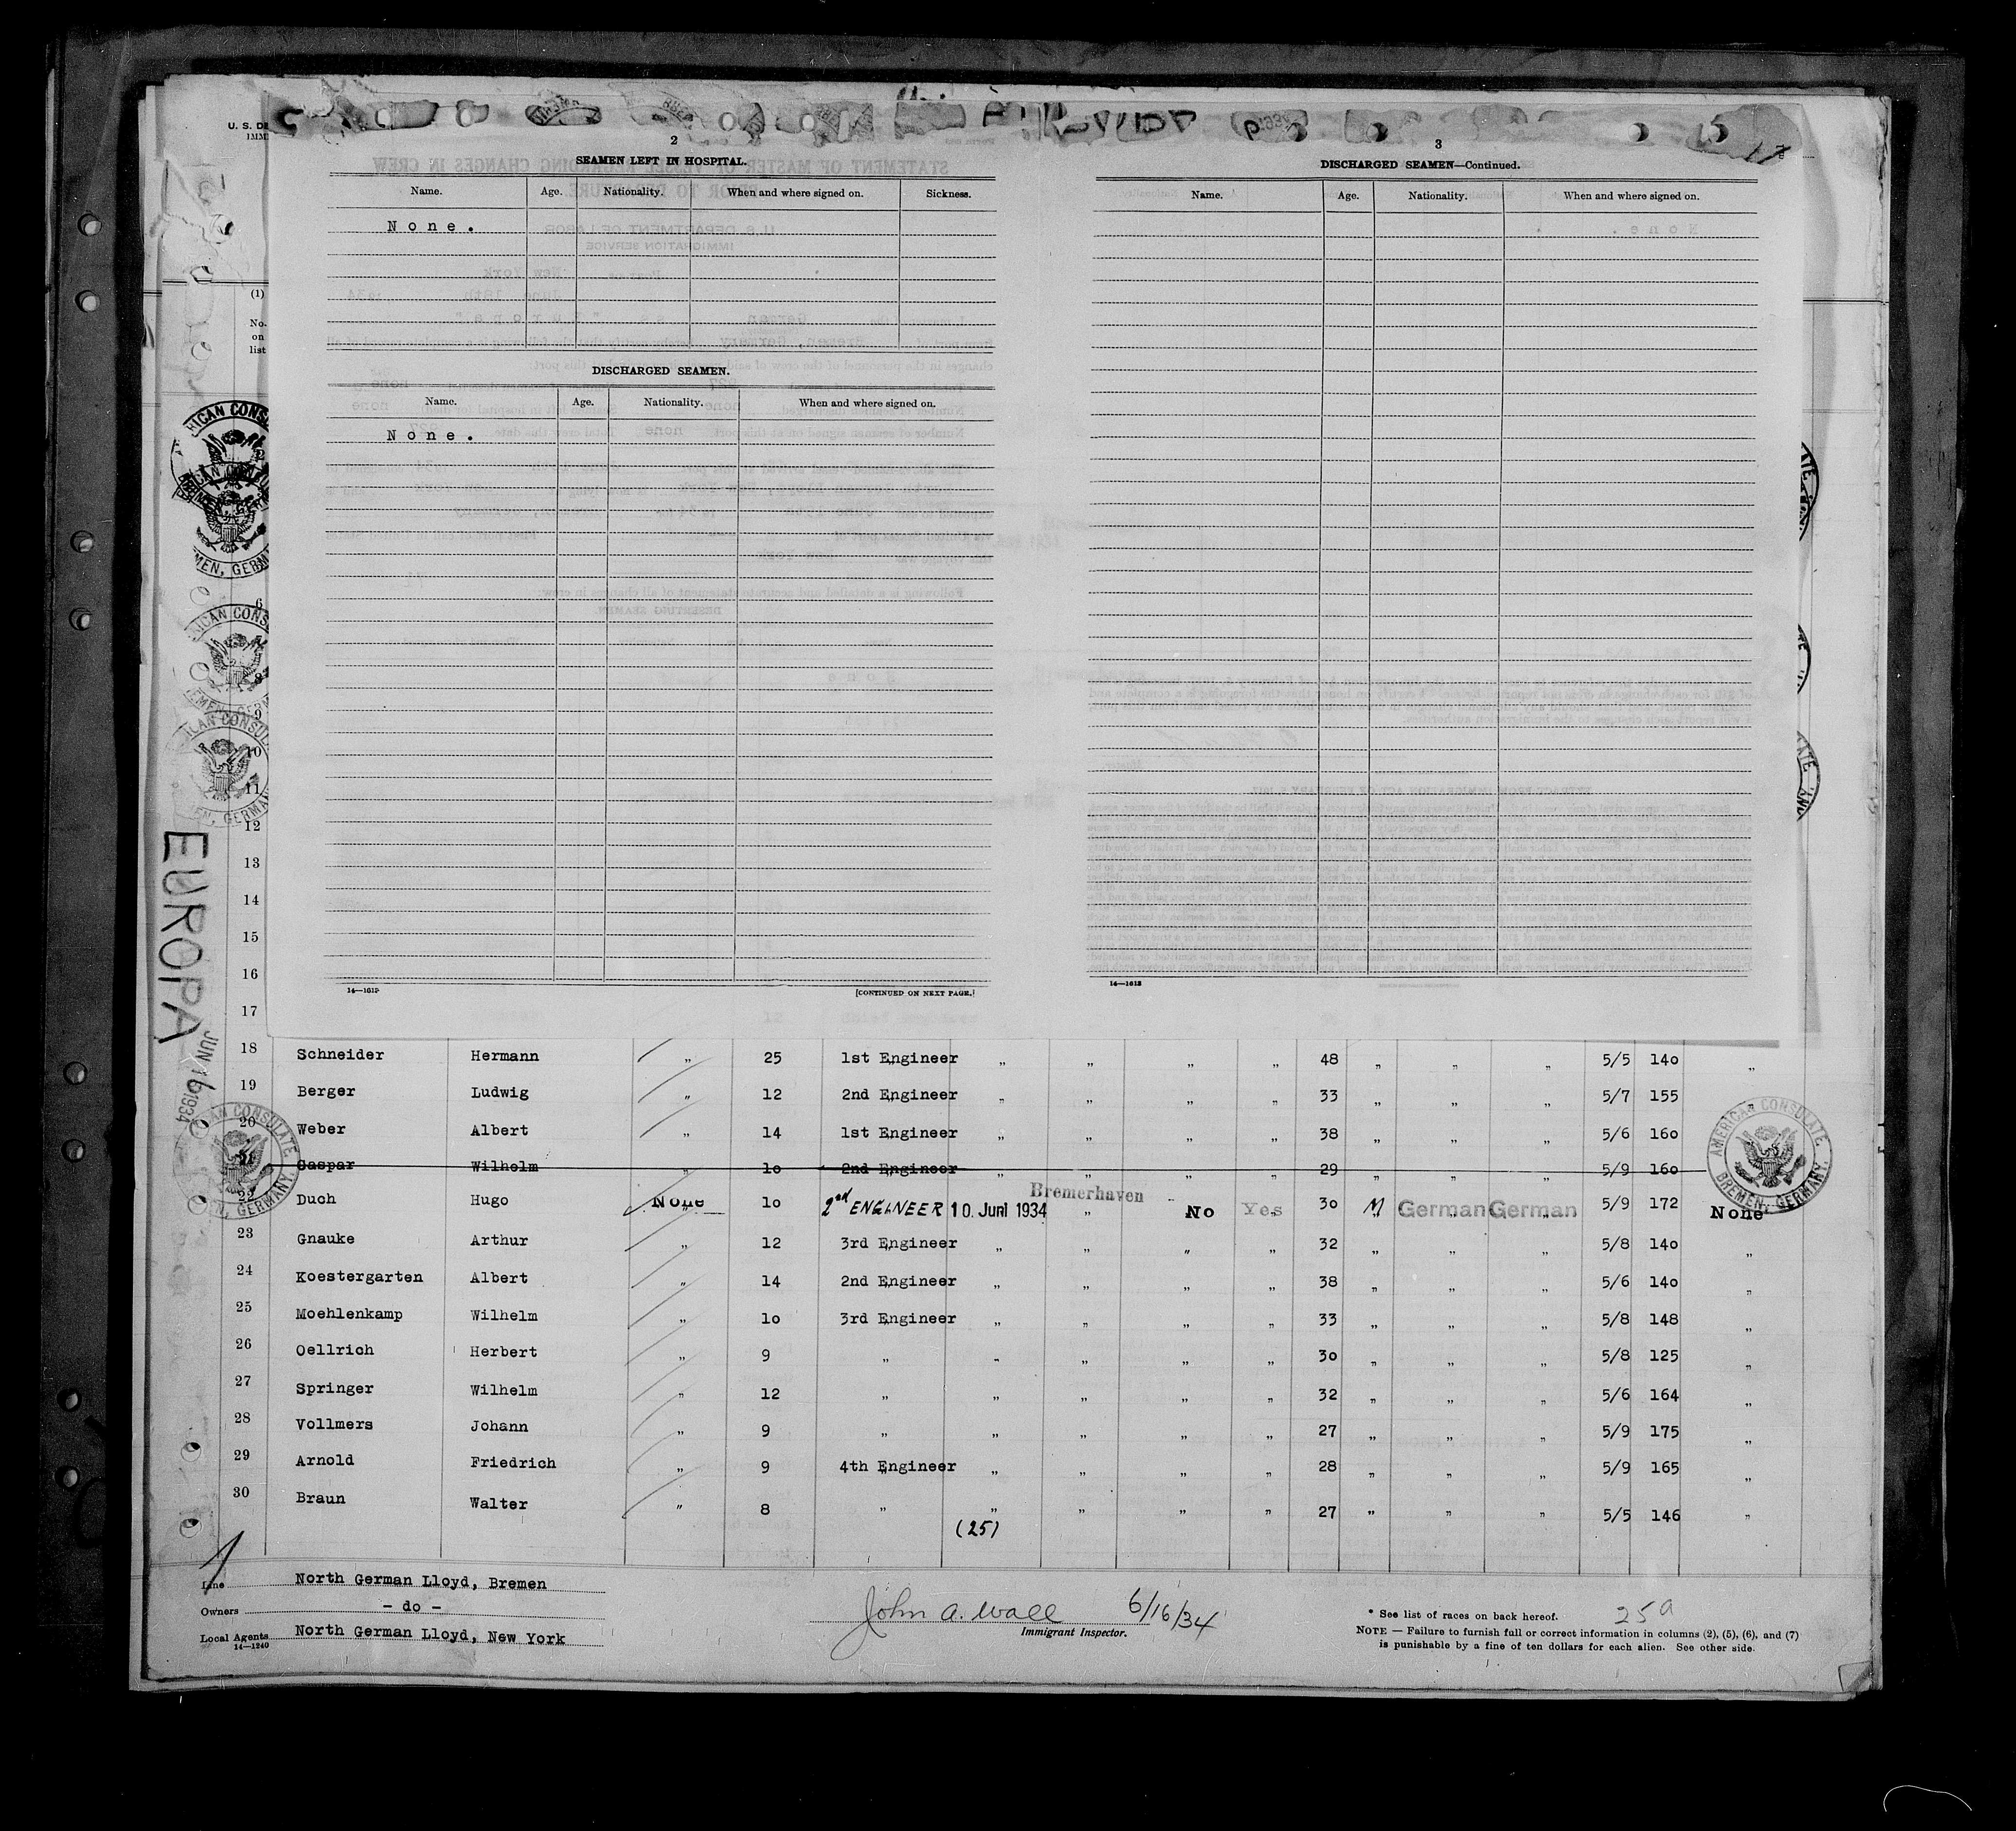 U. S. DE
IMM
2
SEAMEN LEFT IN HOSPITAL.
Name. Age. Nationality. When and where signed on. Sickness.
None.
DISCHARGED SEAMEN.
Name. Age. Nationality. When and where signed on.
None.
14—1613 [CONTINUED ON NEXT PAGE.]
3
DISCHARGED SEAMEN—Continued.
Name. Age. Nationality. When and where signed on.
14—1613
(1)
No.
on
list
6
8
9
10
11
12
13
14
15
16
17
EUROPA
JUN 16 1934
AMERICAN CONSULATE
BREMEN, GERMANY.
18 Schneider Hermann „ 25 1st Engineer „ „ „ „ 48 „ „ „ 5/5 140 „
19 Berger Ludwig „ 12 2nd Engineer „ „ „ „ 33 „ „ „ 5/7 155 „
20 Weber Albert „ 14 1st Engineer „ „ „ „ 38 „ „ „ 5/6 160
21 Gaspar Wilhelm „ 10 2nd Engineer „ „ „ „ 29 „ „ „ 5/9 160
22 Duch Hugo None 10 2nd ENGINEER 10. Juni 1934 Bremerhaven No Yes 30 M German German 5/9 172 None
23 Gnauke Arthur „ 12 3rd Engineer „ „ „ „ 32 „ „ „ 5/8 140 „
24 Koestergarten Albert „ 14 2nd Engineer „ „ „ „ 38 „ „ „ 5/6 140 „
25 Moehlenkamp Wilhelm „ 10 3rd Engineer „ „ „ „ 33 „ „ „ 5/8 148 „
26 Oellrich Herbert „ 9 „ „ „ „ „ 30 „ „ „ 5/8 125 „
27 Springer Wilhelm „ 12 „ „ „ „ „ 32 „ „ „ 5/6 164 „
28 Vollmers Johann „ 9 „ „ „ „ „ 27 „ „ „ 5/9 175 „
29 Arnold Friedrich „ 9 4th Engineer „ „ „ „ 28 „ „ „ 5/9 165 „
30 Braun Walter „ 8 „ „ „ „ „ 27 „ „ „ 5/5 146 „
(25)
Line North German Lloyd, Bremen
Owners - do -
Local Agents North German Lloyd, New York
14—1240
John A. Wall 6/16/34
Immigrant Inspector.
* See list of races on back hereof. 25a
NOTE — Failure to furnish full or correct information in columns (2), (5), (6), and (7)
is punishable by a fine of ten dollars for each alien. See other side.